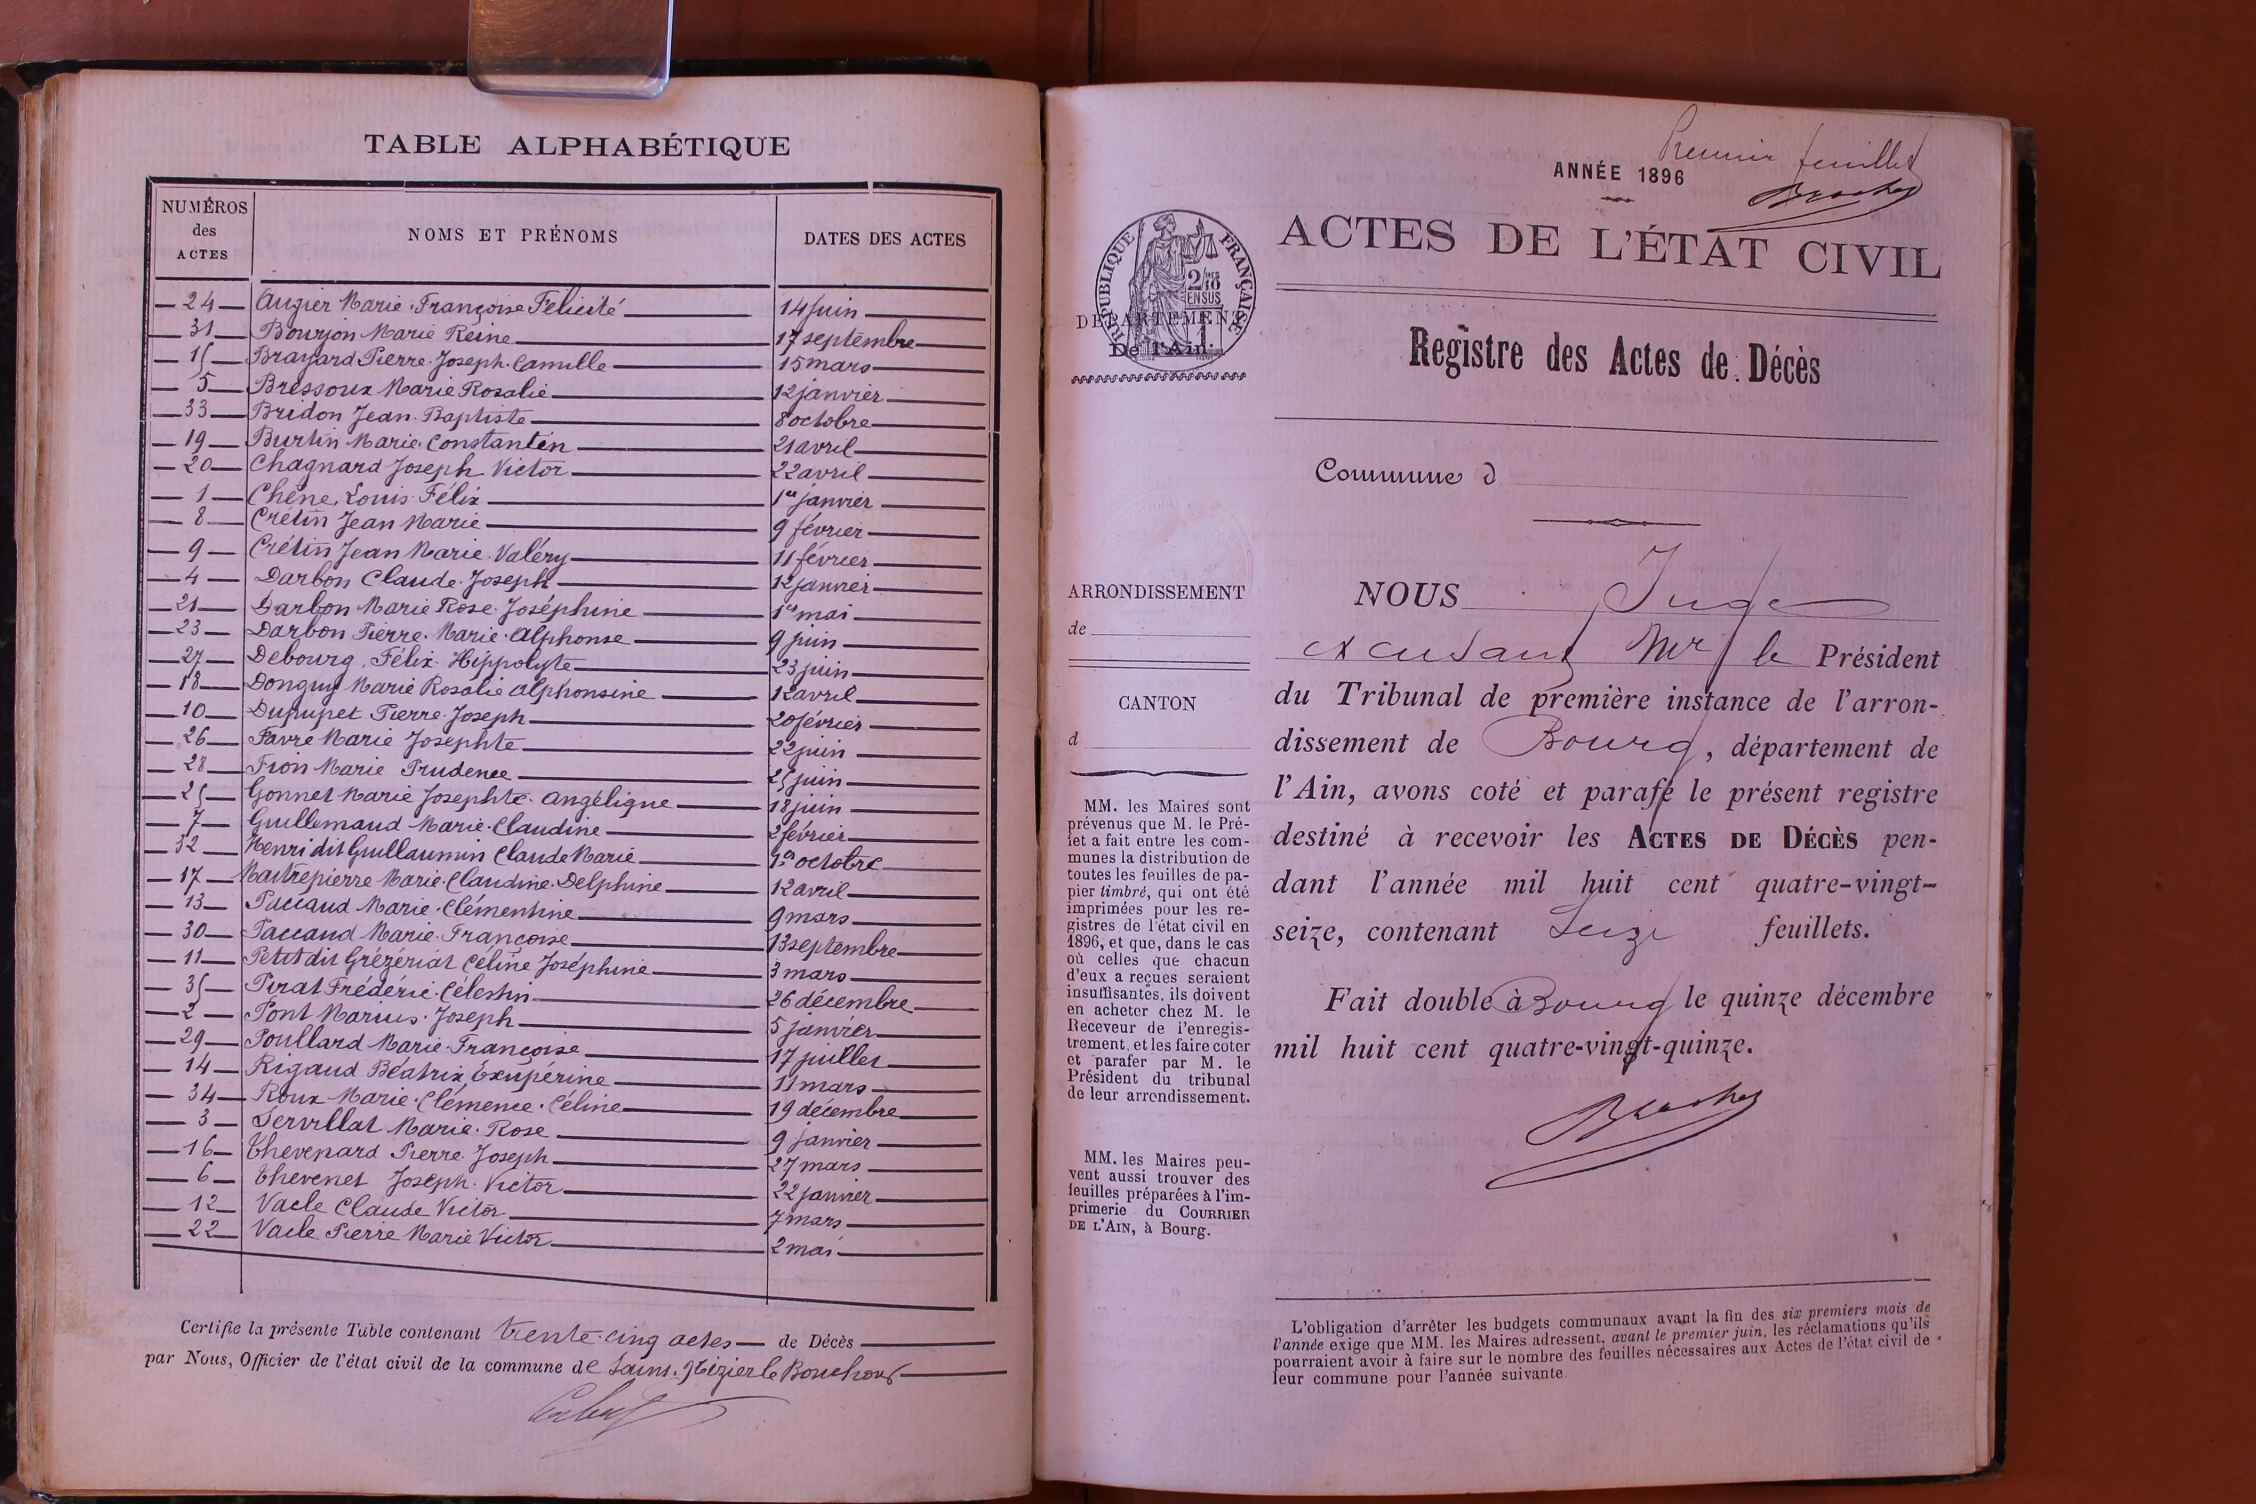 TABLE ALPHABÉTIQUE
NUMÉROS des ACTES
NOMS ET PRÉNOMS
DATES DES ACTES
24 Augier Marie Françoise Félicité 14 juin
31 Bourjon Marie Reine 17 septembre
15 Brayard Pierre Joseph Camille 15 mars
5 Bressoux Marie Rosalie 12 janvier
33 Bridon Jean Baptiste 8 octobre
19 Burtin Marie Constantin 21 avril
20 Chagnard Joseph Victor 22 avril
1 Chêne, Louis Félix 1er janvier
8 Crétin Jean Marie 9 février
9 Crétin Jean Marie Valéry 11 février
4 Darbon Claude Joseph 12 janvier
21 Darbon Marie Rose Joséphine 1er mai
23 Darbon Pierre Marie Alphonse 9 juin
27 Debourg, Félix Hippolyte 23 juin
18 Donguy Marie Rosalie Alphonsine 12 avril
10 Dupupet Pierre Joseph 20 février
26 Favre Marie Josephte 22 juin
28 Fion Marie Prudence 25 juin
25 Gonnet Marie Josephte Angélique 18 juin
7 Guillemaud Marie Claudine 2 février
32 Henri dit Guillaumin Claude Marie 1er octobre
17 Maitrepierre Marie Claudine Delphine 12 avril
13 Paccaud Marie Clémentine 9 mars
30 Paccaud Marie Françoise 13 septembre
11 Petit dit Grézériat Céline Joséphine 3 mars
35 Pirat Fréderic Célestin 26 décembre
2 Pont Marius Joseph 5 janvier
29 Poullard Marie Françoise 17 juillet
14 Rigaud Béatrix Exupérine 11 mars
34 Roux Marie Clémence Céline 19 décembre
3 Servillat Marie Rose 9 janvier
16 Thevenard Pierre Joseph 27 mars
6 Thevenet Joseph Victor 22 janvier
12 Vacle Claude Victor 7 mars
22 Vacle Pierre Marie Victor 2 mai
Certifie la présente Table contenant trente-cinq actes de Décès
par Nous, Officier de l'état civil de la commune de Saint-Nizier le Bouchoux
Premier feuillet
ANNÉE 1896
ACTES DE L'ÉTAT CIVIL
RÉPUBLIQUE FRANÇAISE
2/10 EN SUS
DÉPARTEMENT
De l'Ain
Registre des Actes de Décès
Commune d
ARRONDISSEMENT
de
CANTON
d
MM. les Maires sont
prévenus que M. le Pré-
fet a fait entre les com-
munes la distribution de
toutes les feuilles de pa-
pier timbré, qui ont été
imprimées pour les re-
gistres de l'état civil en
1896, et que, dans le cas
où celles que chacun
d'eux a reçues seraient
insuffisantes, ils doivent
en acheter chez M. le
Receveur de l'enregis-
trement, et les faire coter
et parafer par M. le
Président du tribunal
de leur arrondissement.
MM. les Maires peu-
vent aussi trouver des
feuilles préparées à l'im-
primerie du COURRIER
DE L'AIN, à Bourg.
NOUS Juge
excusant Mr le Président
du Tribunal de première instance de l'arron-
dissement de Bourg, département de
l'Ain, avons coté et parafé le présent registre
destiné à recevoir les ACTES DE DÉCÈS pen-
dant l'année mil huit cent quatre-vingt-
seize, contenant Seize feuillets.
Fait double à Bourg le quinze décembre
mil huit cent quatre-vingt-quinze.
L'obligation d'arrêter les budgets communaux avant la fin des six premiers mois de
l'année exige que MM. les Maires adressent, avant le premier juin, les réclamations qu'ils
pourraient avoir à faire sur le nombre des feuilles nécessaires aux Actes de l'état civil de
leur commune pour l'année suivante.